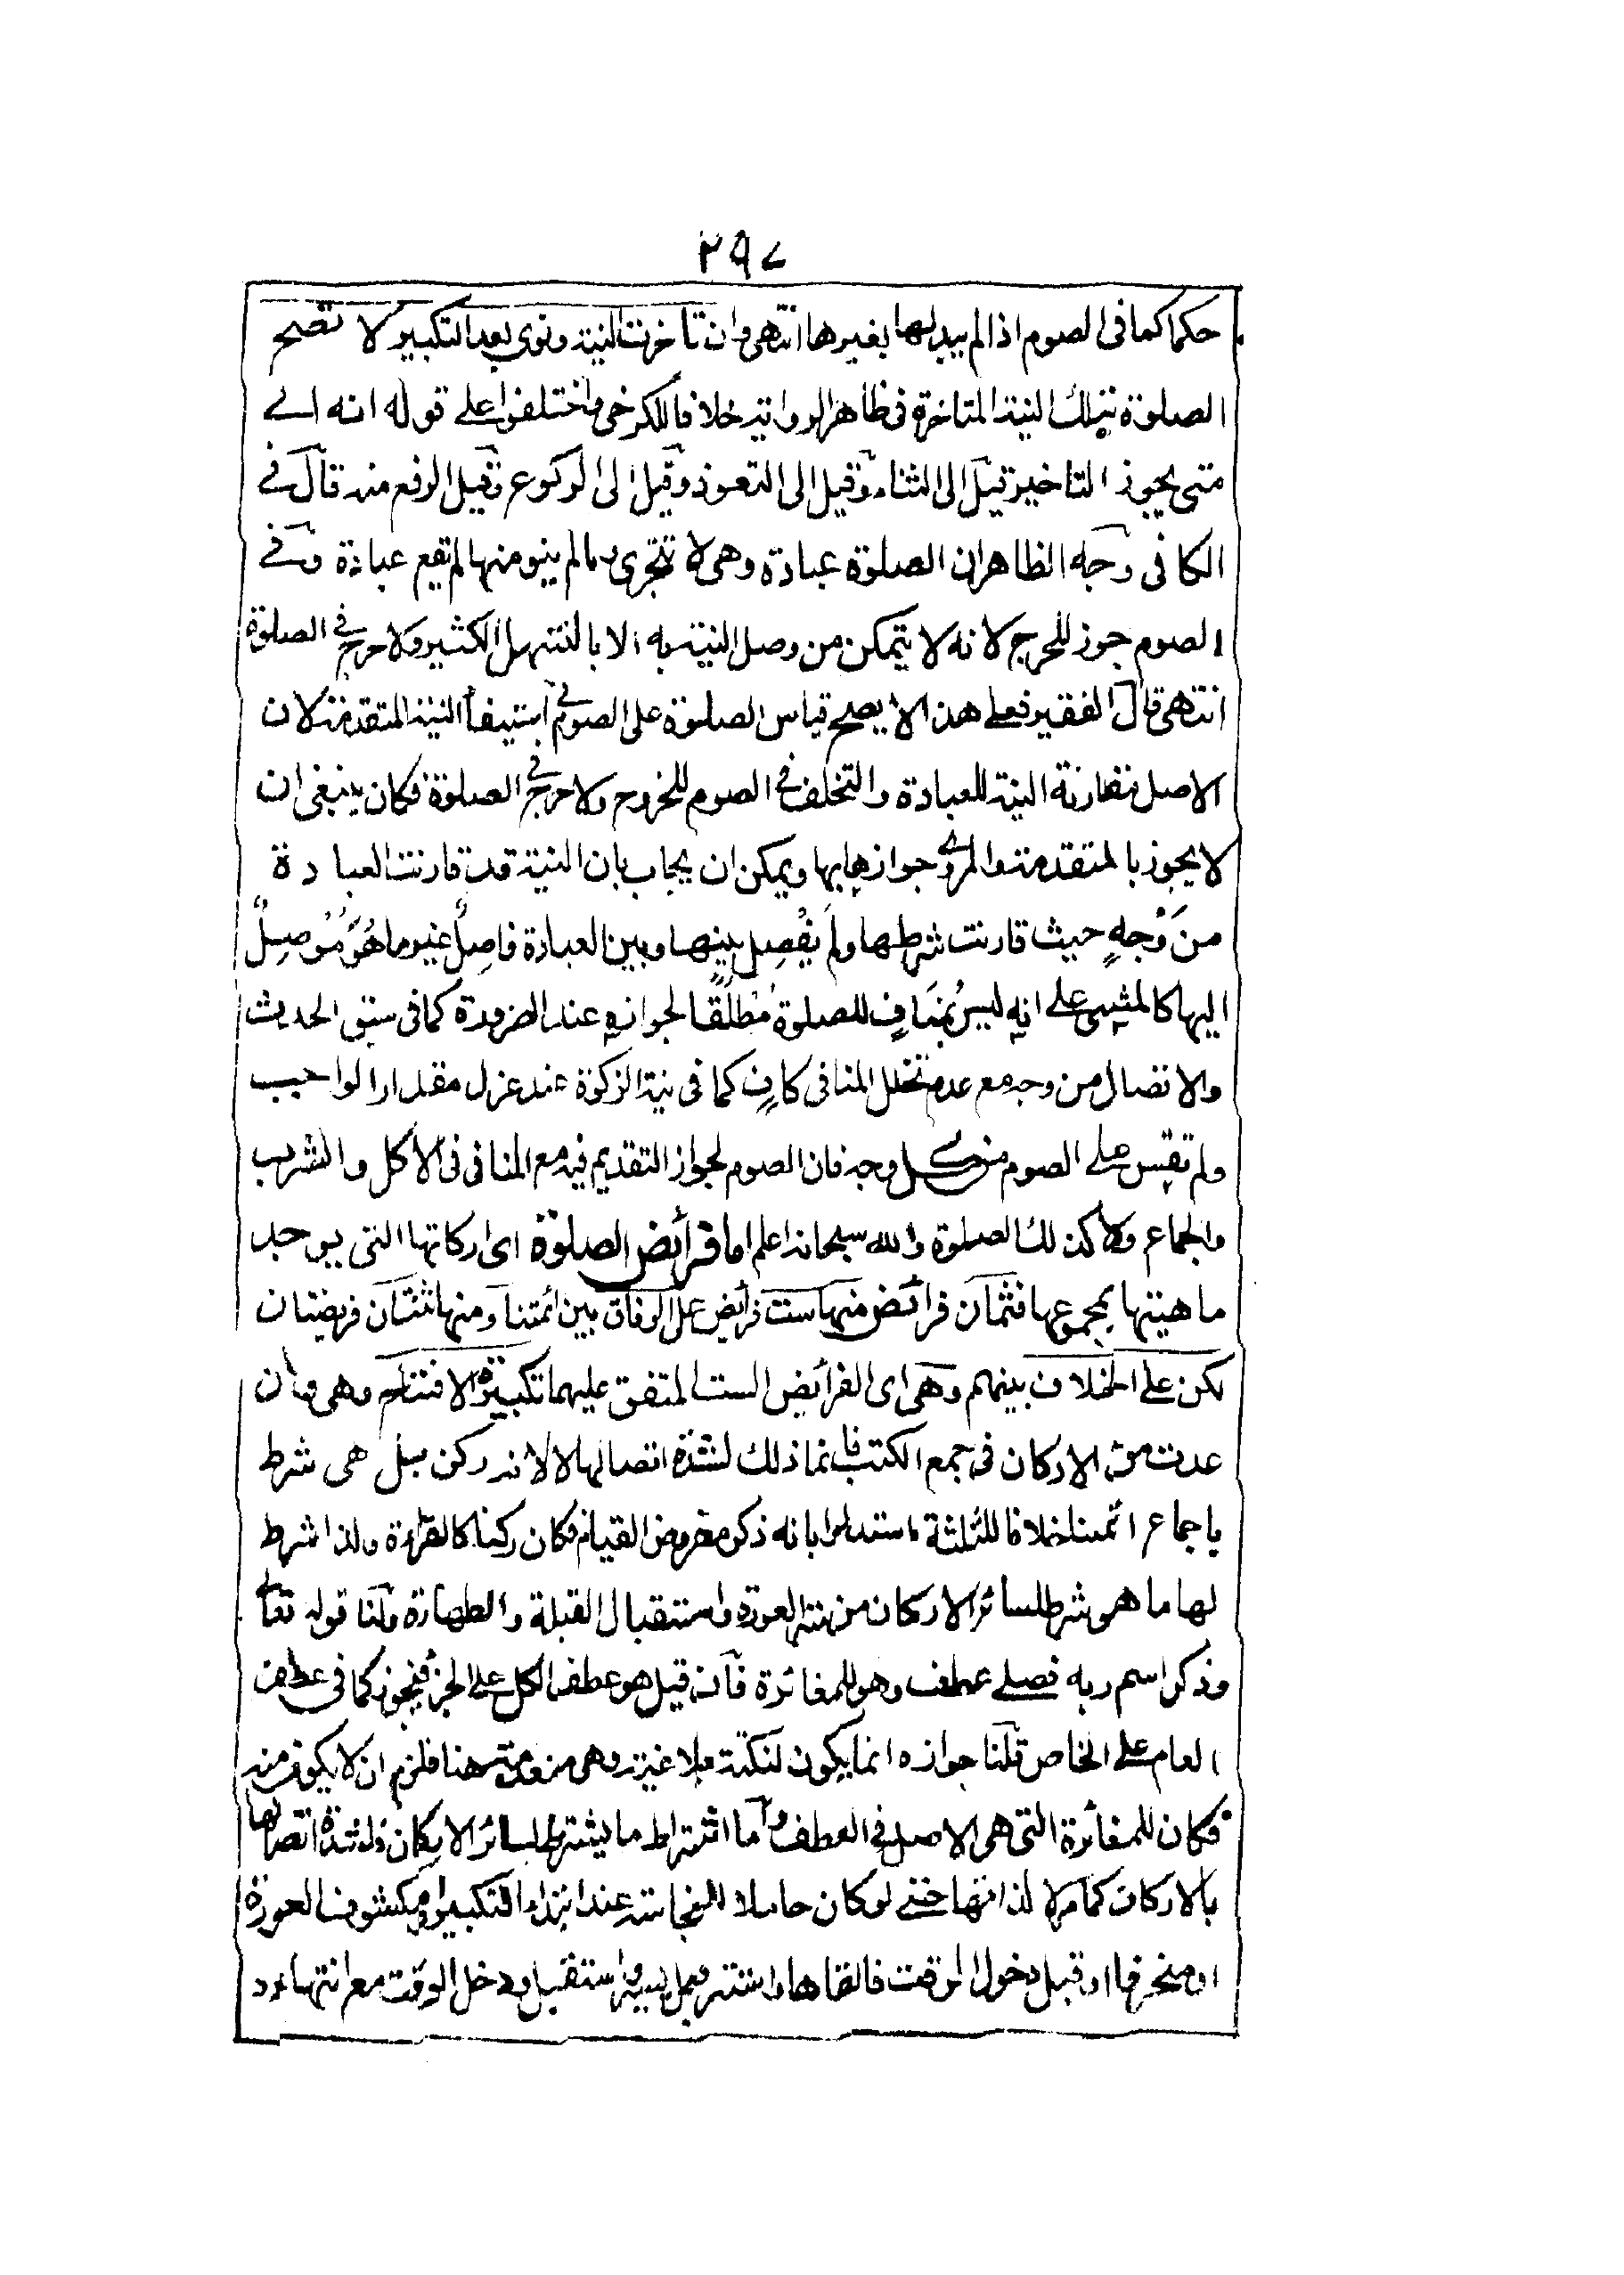 ٢٩٧
حكما كما فى الصوم اذا لم يبدلها بغيرها انتهى وان تأخرت النية ونوى بعد التكبير لا تصح
الصلوة بتلك النية المتاخرة فى ظاهر الرواية خلافا للكرخى واختلفوا على قوله انه الى
متى يجوز التاخير قيل الى الثناء وقيل الى التعوذ وقيل الى الركوع وقيل الرفع منه قال فى
الكافى وجه الظاهر ان الصلوة عبادة وهى لا تتجزى فما لم ينو منها لم تقع عبادة وفى
الصوم جوز للحرج لانه لا يتمكن من وصل النية به الا بالتسهل الكثير ولا حرج فى الصلوة
انتهى قال الفقير فعلى هذا لا يصح قياس الصلوة على الصوم فى النية المتقدمة لان
الاصل مقارنة النية للعبادة والتخلف فى الصوم للخروج ولا حرج فى الصلوة فكان ينبغى ان
لا يجوز بالمتقدمة والمروى جوازها بها ويمكن ان يجاب بان النية قد قارنت العبادة
من وَجهٍ حيث قارنت شرطها ولم يُفصِل بينها وبين العبادة فاصِلٌ غير ما هُوَ مُوصِلٌ
اليها كالمشى على انه ليس بمُنَافٍ للصلوة مُطلقًا لجوازه عند الضرورة كما فى سبق الحديث
والاتصال من وجه مع عدم تخلل المنافى كافٍ كما فى نية الزكوة عند عزل مقدار الواجب
ولم تقس على الصوم من كل وجه فان الصوم لجواز التقديم فيه مع المنافى فى الاكل والشرب
والجماع ولا كذلك الصلوة والله سبحانه اعلم اما فرائض الصلوة اى اركانها التى يوجد
ماهيتها بمجموعها فثمان فرائض منها ست فرائض على الوفاق بين ائمتنا ومنها ثنتان فريضتان
لكن على الخلاف بينهم وهى اى الفرائض الست المتفق عليها تكبيرة الافتتاح وهى وان
عدت من الاركان فى جمع الكتب فانما ذلك لشدة اتصالها لا لانه ركن بل هى شرط
باجماع ائمتنا خلافا للثلثة استدلوا بانه ذكر مفروض القيام فكان ركنا كالقراءة ولذا شرط
لها ما هو شرط لسائر الاركان من ستر العورة واستقبال القبلة والطهارة ولنا قوله تعالى
وذكر اسم ربه فصلى عطف وهو للمغائرة فان قيل هو عطف الكل على الجزء فيجوز كما فى عطف
العام على الخاص قلنا جوازه انما يكون لنكتة بلاغية وهى معدومة هنا فلزم ان لا يكون منه
فكان للمغائرة التى هى الاصل فى العطف واما اشتراط ما يشترط لسائر الاركان فلشدة اتصالها
بالاركان كما مر لا لذاتها حتى لو كان حاملا للنجاسة عند ابتداء التكبير او مكشوف العورة
او منحرفا او قبل دخول الوقت فالقاها واستتر بعمل يسير واستقبل ودخل الوقت مع انتهاء